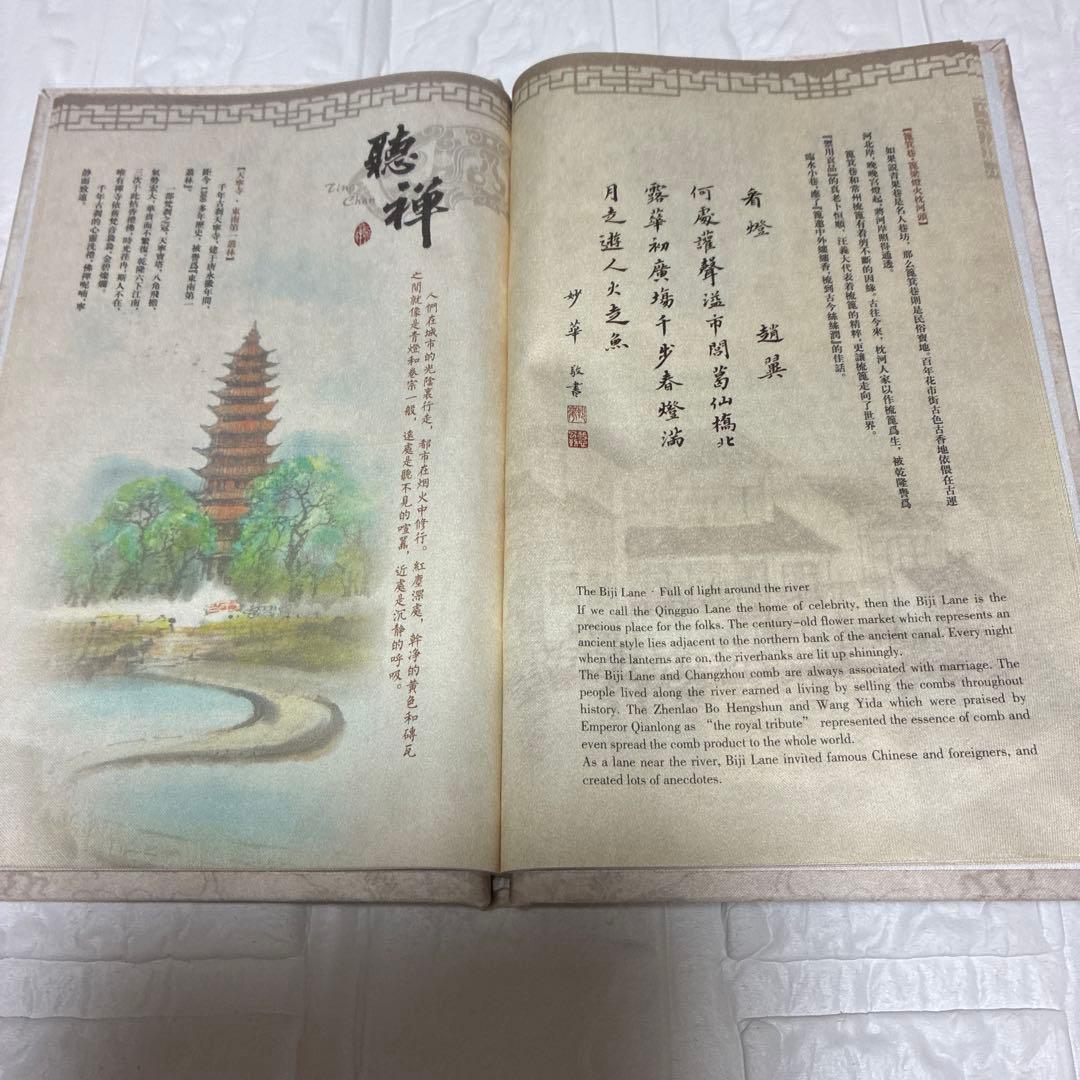 聽禪
Ting Chan
【天寧寺·東南第一叢林】
千年古刹天寧寺，建于唐永徽年間，
距今1300多年歷史，被譽爲『東南第一
叢林』。
一郡梵刹之冠，天寧寶塔，八角飛檐，
氣勢宏大，華貴而不繁復。乾隆六下江南，
三次于此炳香禮佛，時光荏冉，斯人不在，
唯有禪寺依舊梵音裊裊，金碧燦爛。
千年古刹的心靈洗禮，佛禪呢喃，寧
静而致遠。
人們在城市的光陰裏行走，都市在烟火中修行。紅塵深處，幹净的黄色和磚瓦
之間就像是青燈和卷宗一般，遠處是聽不見的喧囂，近處是沉静的呼吸。
【篦箕巷·篦梁燈火枕河頭】
如果説青果巷是名人巷坊，那么篦箕巷則是民俗寶地。百年花市街古色古香地依偎在古運
河北岸，晚晚宫燈起，將河岸照得通透。
篦箕巷和常州梳篦有着剪不斷的因緣。古往今來，枕河人家以作梳篦爲生，被乾隆譽爲
『禦用貢品』的真老卜恒順、汪義大代表着梳篦的精粹，更讓梳篦走向了世界。
臨水小巷，應了『篦遍中外縷縷香，梳到古今絲絲潤』的佳話。
看燈 趙翼
何處讙聲溢市閭葛仙橋北
露華初廣場千步春燈滿
月走遊人火走魚
妙華 敬書
The Biji Lane · Full of light around the river
If we call the Qingguo Lane the home of celebrity, then the Biji Lane is the
precious place for the folks. The century-old flower market which represents an
ancient style lies adjacent to the northern bank of the ancient canal. Every night
when the lanterns are on, the riverbanks are lit up shiningly.
The Biji Lane and Changzhou comb are always associated with marriage. The
people lived along the river earned a living by selling the combs throughout
history. The Zhenlao Bo Hengshun and Wang Yida which were praised by
Emperor Qianlong as “the royal tribute” represented the essence of comb and
even spread the comb product to the whole world.
As a lane near the river, Biji Lane invited famous Chinese and foreigners, and
created lots of anecdotes.